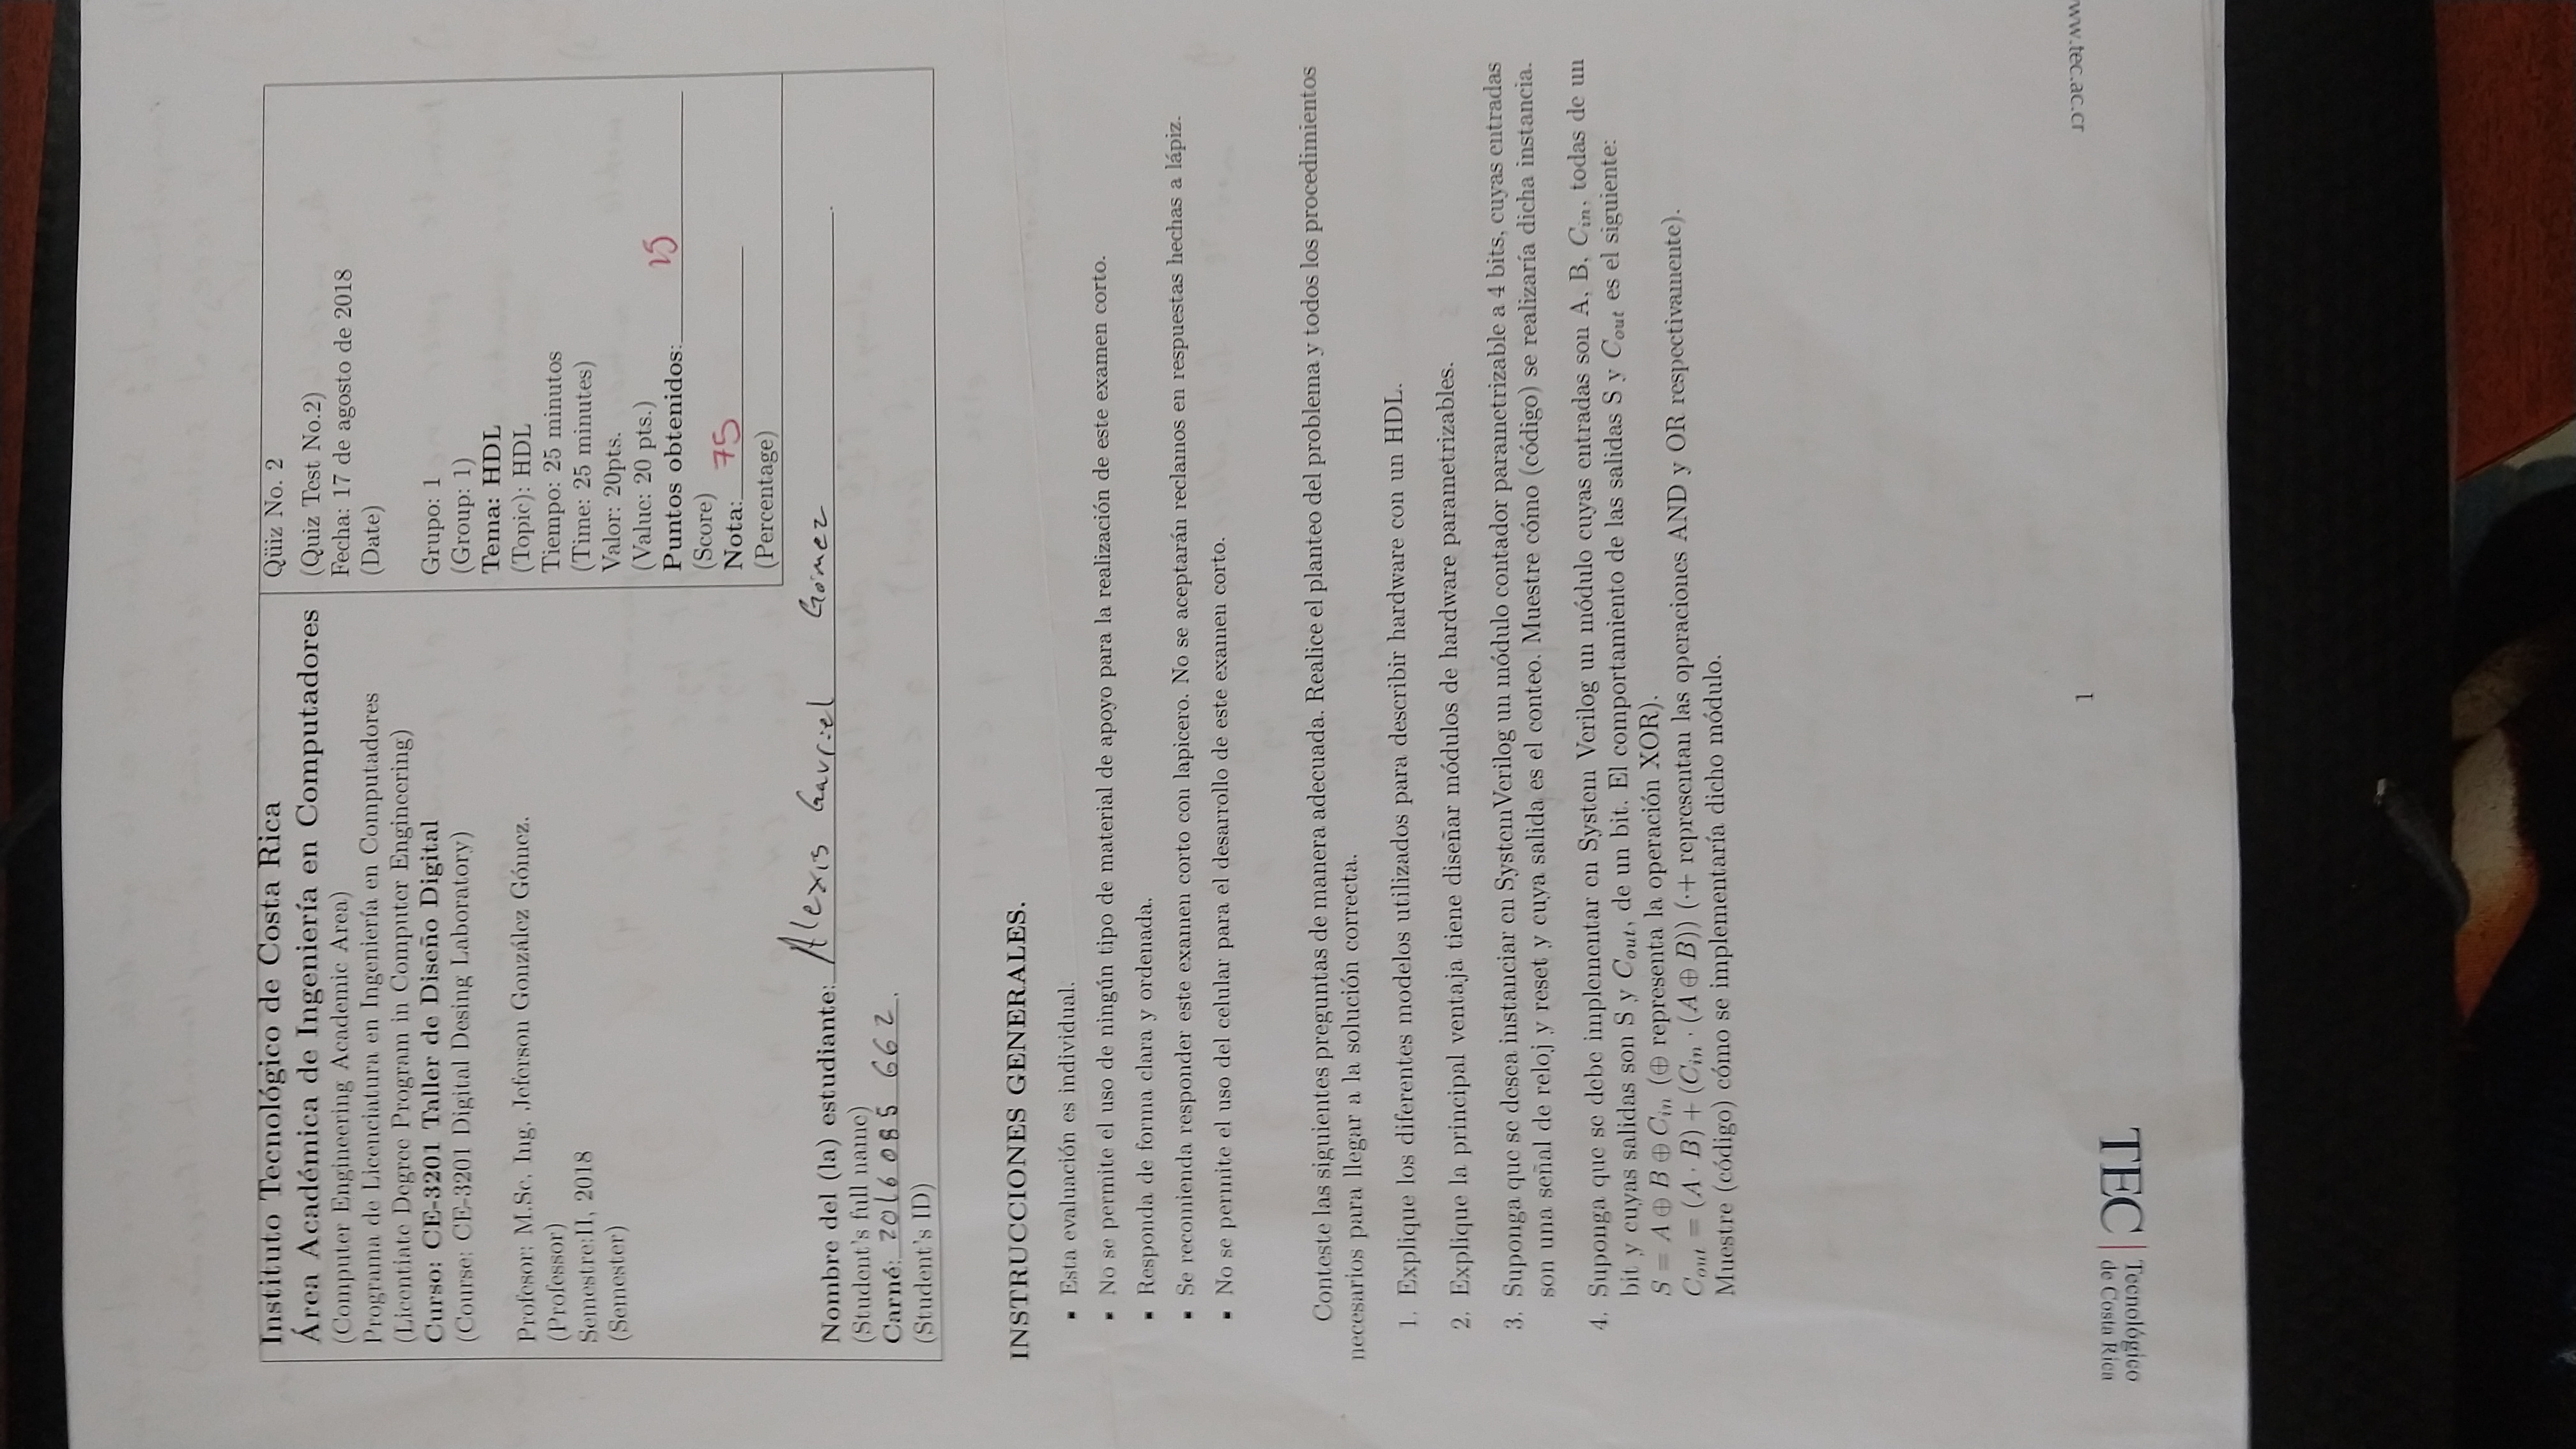 Instituto Tecnológico de Costa Rica
Área Académica de Ingeniería en Computadores
(Computer Engineering Academic Area)
Programa de Licenciatura en Ingeniería en Computadores
(Licentiate Degree Program in Computer Engineering)
Curso: CE-3201 Taller de Diseño Digital
(Course: CE-3201 Digital Desing Laboratory)
Profesor: M.Sc. Ing. Jeferson González Gómez.
(Professor)
Semestre:II, 2018
(Semester)
Qüiz No. 2
(Quiz Test No.2)
Fecha: 17 de agosto de 2018
(Date)
Grupo: 1
(Group: 1)
Tema: HDL
(Topic): HDL
Tiempo: 25 minutos
(Time: 25 minutes)
Valor: 20pts.
(Value: 20 pts.)
Puntos obtenidos: 15
(Score)
Nota: 75
(Percentage)
Nombre del (la) estudiante: Alexis Gavriel Gómez.
(Student's full name)
Carné: 2016085662.
(Student's ID)
INSTRUCCIONES GENERALES.
▪ Esta evaluación es individual.
▪ No se permite el uso de ningún tipo de material de apoyo para la realización de este examen corto.
▪ Responda de forma clara y ordenada.
▪ Se recomienda responder este examen corto con lapicero. No se aceptarán reclamos en respuestas hechas a lápiz.
▪ No se permite el uso del celular para el desarrollo de este examen corto.
Conteste las siguientes preguntas de manera adecuada. Realice el planteo del problema y todos los procedimientos
necesarios para llegar a la solución correcta.
1. Explique los diferentes modelos utilizados para describir hardware con un HDL.
2. Explique la principal ventaja tiene diseñar módulos de hardware parametrizables.
3. Suponga que se desea instanciar en SystemVerilog un módulo contador parametrizable a 4 bits, cuyas entradas
son una señal de reloj y reset y cuya salida es el conteo. Muestre cómo (código) se realizaría dicha instancia.
4. Suponga que se debe implementar en System Verilog un módulo cuyas entradas son A, B, Cin, todas de un
bit y cuyas salidas son S y Cout, de un bit. El comportamiento de las salidas S y Cout es el siguiente:
S = A ⊕ B ⊕ Cin (⊕ representa la operación XOR).
Cout = (A · B) + (Cin · (A ⊕ B)) (·+ representan las operaciones AND y OR respectivamente).
Muestre (código) cómo se implementaría dicho módulo.
1
ww.tec.ac.cr
TEC | Tecnológico
de Costa Rica